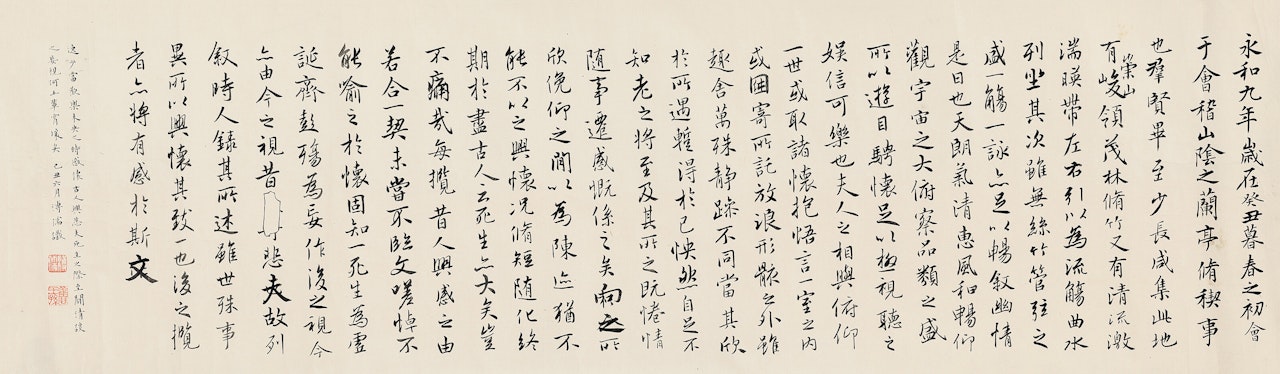 永和九年歲在癸丑暮春之初會
于會稽山陰之蘭亭脩稧事
也羣賢畢至少長咸集此地
有崇山峻領茂林脩竹又有清流激
湍暎帶左右引以為流觴曲水
列坐其次雖無絲竹管弦之
盛一觴一詠亦足以暢敘幽情
是日也天朗氣清惠風和暢仰
觀宇宙之大俯察品類之盛
所以遊目騁懷足以極視聽之
娛信可樂也夫人之相與俯仰
一世或取諸懷抱悟言一室之內
或因寄所託放浪形骸之外雖
趣舍萬殊靜躁不同當其欣
於所遇蹔得於己怏然自足不
知老之將至及其所之既惓情
隨事遷感慨係之矣向之所
欣俛仰之閒以為陳迹猶不
能不以之興懷況脩短隨化終
期於盡古人云死生亦大矣豈
不痛哉每攬昔人興感之由
若合一契未嘗不臨文嗟悼不
能喻之於懷固知一死生為虛
誕齊彭殤為妄作後之視今
亦由今之視昔悲夫故列
敘時人錄其所述雖世殊事
異所以興懷其致一也後之攬
者亦將有感於斯文
逸少當歡樂未央之時懷古人興悲死生之際
己丑六月溥儒識